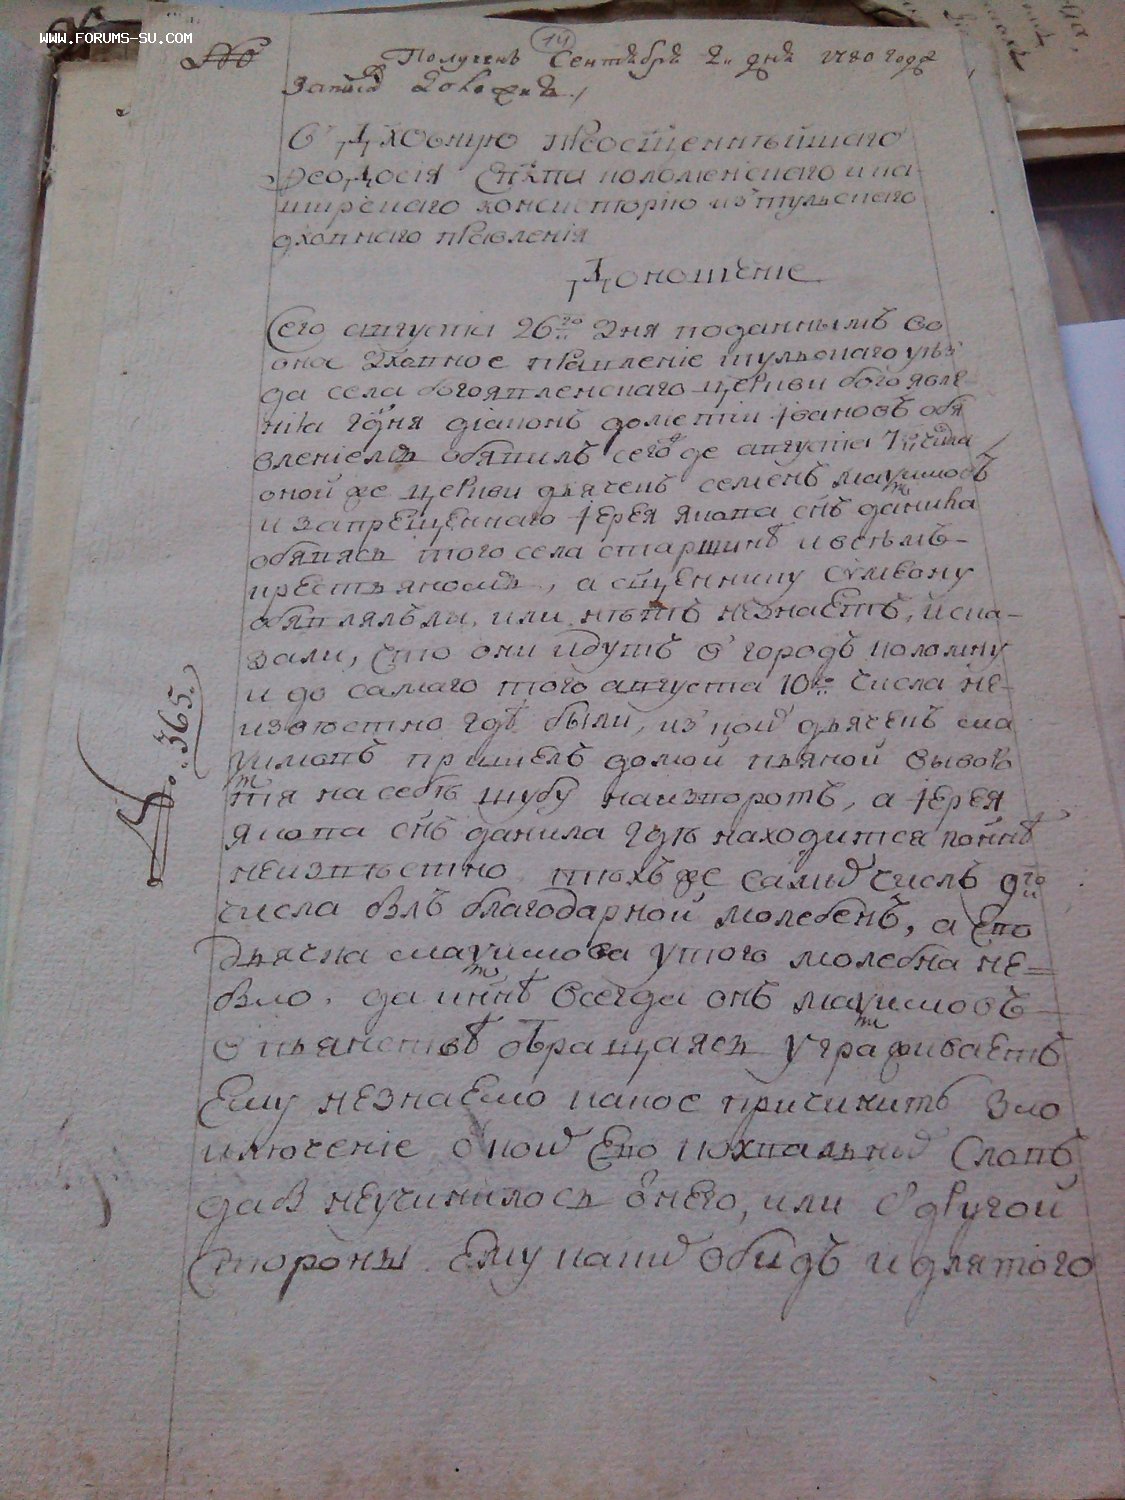 WWW.FORUMS-SU.COM
14
Полученъ Сентября 2. дня 1780 года
записа
В Духовную преосщеннѣйшаго
Феодосія Епкпа коломенскаго и ка
ширскаго консисторию из тульскаго
духовнаго правленія
Доношение
Сего августа 26го дня поданнымъ во
оное духовное правление тульскаго уѣз
да села богоявленскаго церкви богоявле
нiа гдня діаконъ дометти Iвановъ объя
влениемъ объявилъ сего де августа 7го числа
оной же церкви дьячекъ семенъ максимовъ
и запрещеннаго Iерея якова снъ данила
объявясь того села старшинѣ и всѣмъ
крестьяномъ, а сщеннику Симеону
объявлялъ ли, или нѣтъ незнаетъ, и ска
зали, что они идутъ в городъ коломну
и до самаго того августа 10го числа не
извѣстно гдѣ были, из коих дьячекъ ма
ксимовъ пришелъ домой пьяной выворо
тя на себѣ шубу наизворотъ, а Iерея
якова снъ данила гдѣ находится понне
неизвѣстно тѣхъ же самых числъ 9го
числа былъ благодарной молебенъ, а Ево
дьячка максимова у того молебна не=
было. да и ннѣ всегда онъ максимовъ
в пьянствѣ обращаясь уграживаетъ
Ему незнаемо какое причинить зло
ключение в коих Ево похвальных словъ
дабы неучинилось от него, или с другой
стороны Ему каких обидъ и для того
№ 365.